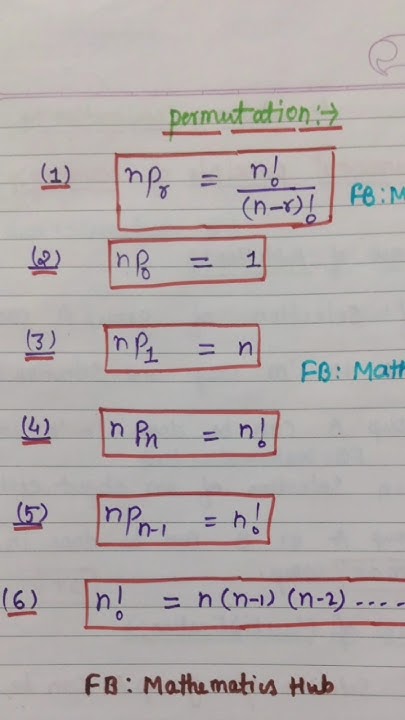 permutation:→
(1) nPr = n!/(n-r)!
FB: M
(2) nP0 = 1
(3) nP1 = n
FB: Math
(4) nPn = n!
(5) nPn-1 = n!
(6) n! = n(n-1)(n-2)....
FB: Mathematics Hub